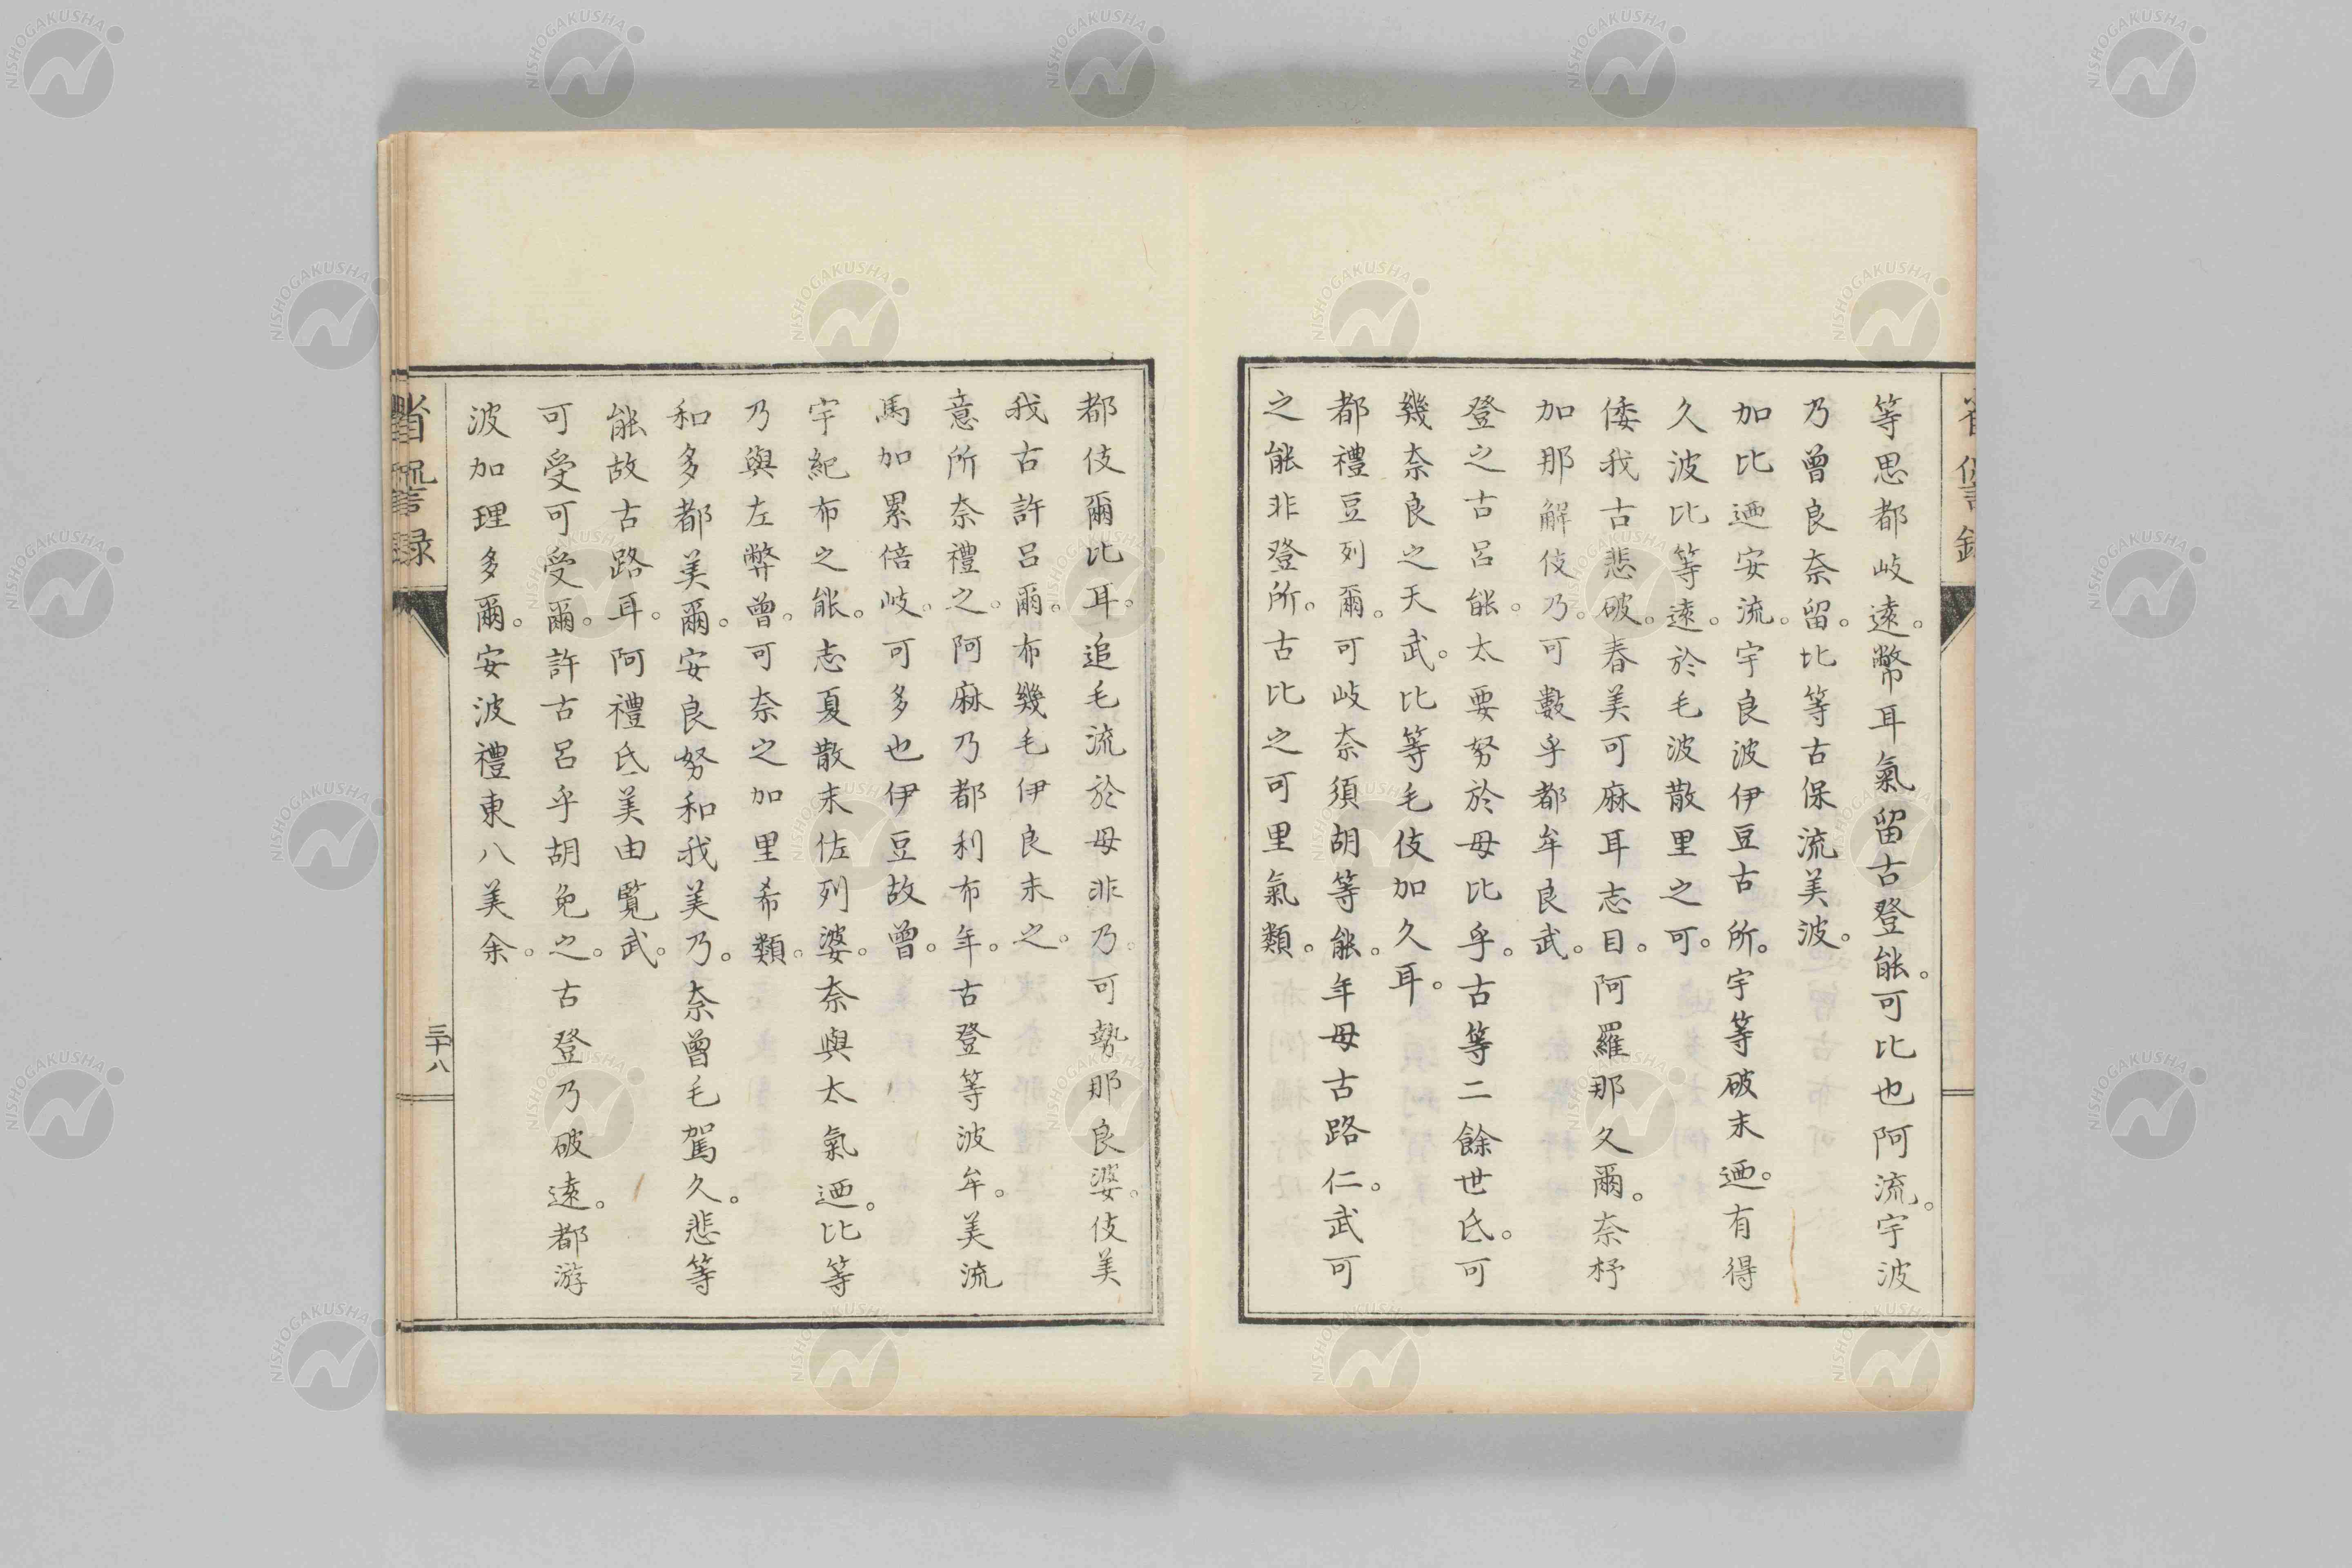 等思都岐遠。幣耳氣留古登能。可比也阿流。宇波
乃曾良奈留。比等古保流美波。
加比迺安流。宇良波伊豆古所。宇等破末迺。有得
久波比等遠。於毛波散里之可。
倭我古悲破。春美可麻耳志目。阿羅那久爾。奈杼
加那解伎乃。可數乎都牟良武。
登之古呂能。太要努於母比乎。古等二餘世氐。可
幾奈良之天武。比等毛伎加久耳。
都禮豆列爾。可岐奈須胡等能。年母古路仁。武可
之能非登所。古比之可里氣類。
都伎爾比耳。追毛流於母非乃。可勢那良婆。伎美
我古許呂爾。布幾毛伊良末之。
意所奈禮之。阿麻乃都利布年。古登等波牟。美流
馬加累倍岐。可多也伊豆故曾。
宇紀布之能。志夏散末佐列婆。奈與太氣迺。比等
乃與左弊曾。可奈之加里希類。
和多都美爾。安良努和我美乃。奈曾毛駕久。悲等
能故古路耳。阿禮氐美由覧武。
可受可受爾。許古呂乎胡免之。古登乃破遠。都游
波加理多爾。安波禮東八美余。
省諐録
三十八